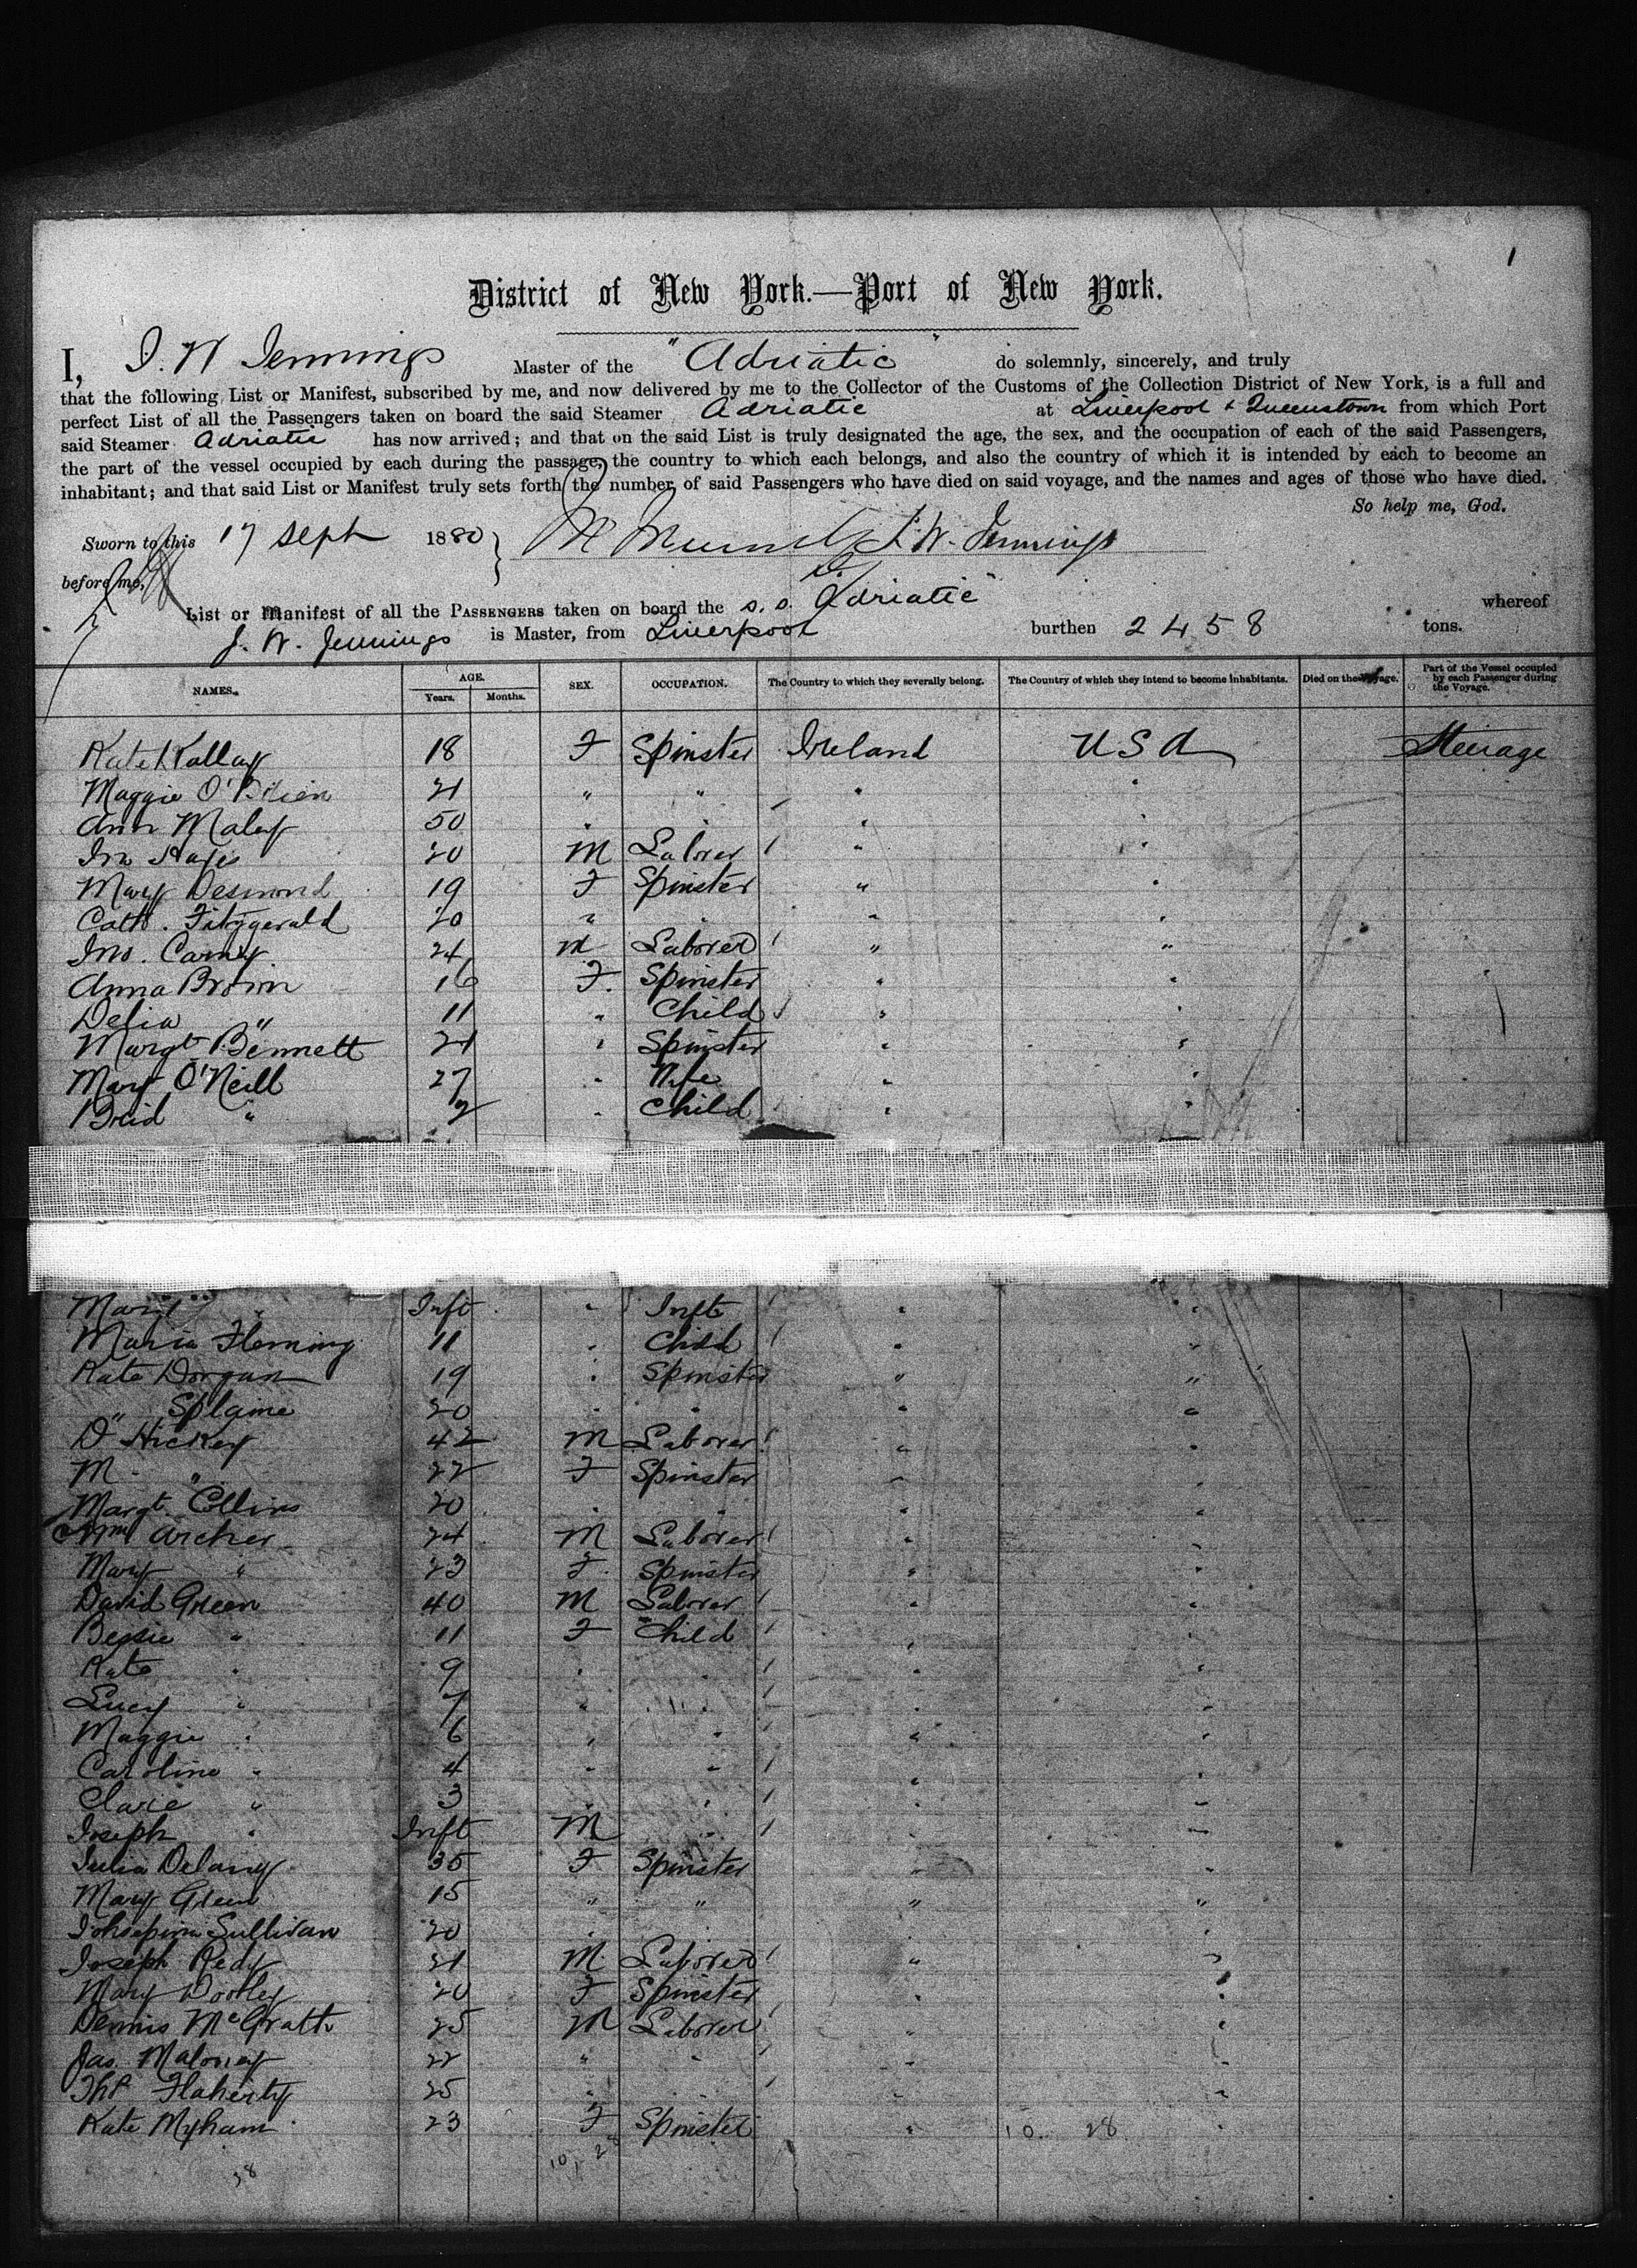 1
District of New York.—Port of New York.
I, J. W Jennings Master of the "Adriatic" do solemnly, sincerely, and truly
that the following List or Manifest, subscribed by me, and now delivered by me to the Collector of the Customs of the Collection District of New York, is a full and
perfect List of all the Passengers taken on board the said Steamer Adriatic at Liverpool & Queenstown from which Port
said Steamer Adriatic has now arrived; and that on the said List is truly designated the age, the sex, and the occupation of each of the said Passengers,
the part of the vessel occupied by each during the passage, the country to which each belongs, and also the country of which it is intended by each to become an
inhabitant; and that said List or Manifest truly sets forth the number of said Passengers who have died on said voyage, and the names and ages of those who have died.
So help me, God.
Sworn to this 17 Sept 1880 J. W. Jennings
before me,
List or Manifest of all the PASSENGERS taken on board the s.s. Adriatic whereof
J. W. Jennings is Master, from Liverpool burthen 2458 tons.
NAMES. AGE. Years. Months. SEX. OCCUPATION. The Country to which they severally belong. The Country of which they intend to become inhabitants. Died on the Voyage. Part of the Vessel occupied by each Passenger during the Voyage.
Kate 18 F Spinster Ireland USA Steerage
Maggie O'Brien 21 " " " "
Ann Maley 50 " " " "
Jno Hayes 20 M Laborer " "
Mary Desmond 19 F Spinster " "
Cath. Fitzgerald 20 " " " "
Jno. Carney 24 M Laborer " "
Anna Brown 16 F. Spinster " "
Delia " 11 " Child " "
Margt. Bennett 21 " Spinster " "
Mary O'Neill 27 " Wife " "
Brid " 2 " Child " "
Mary " Inft " Inft " "
Maria Fleming 11 " Child " "
Kate Dorgan 19 " Spinster " "
" Splaine 20 " " " "
D Hickey 42 M Laborer " "
M " 22 F Spinster " "
Margt. Collins 20 " " " "
Wm Archer 24 M Laborer " "
Mary " 23 F. Spinster " "
David Green 40 M Laborer " "
Bessie " 11 F Child " "
Kate " 9 " " " "
Lucy " 7 " " " "
Maggie " 6 " " " "
Caroline " 4 " " " "
Clare " 3 " " " "
Joseph " Inft M " " "
Julia Delany 35 F Spinster " "
Mary Green 15 " " " "
Sullivan 20 " " " "
Joseph Redy 21 M Laborer " "
Mary Dooley 20 F Spinster " "
Dennis McGrath 25 M Laborer " "
Jas. Maloney 22 " " " "
Thos Flaherty 25 " " " "
Kate Myham 23 F Spinster " 10 28 "
10, 28
38